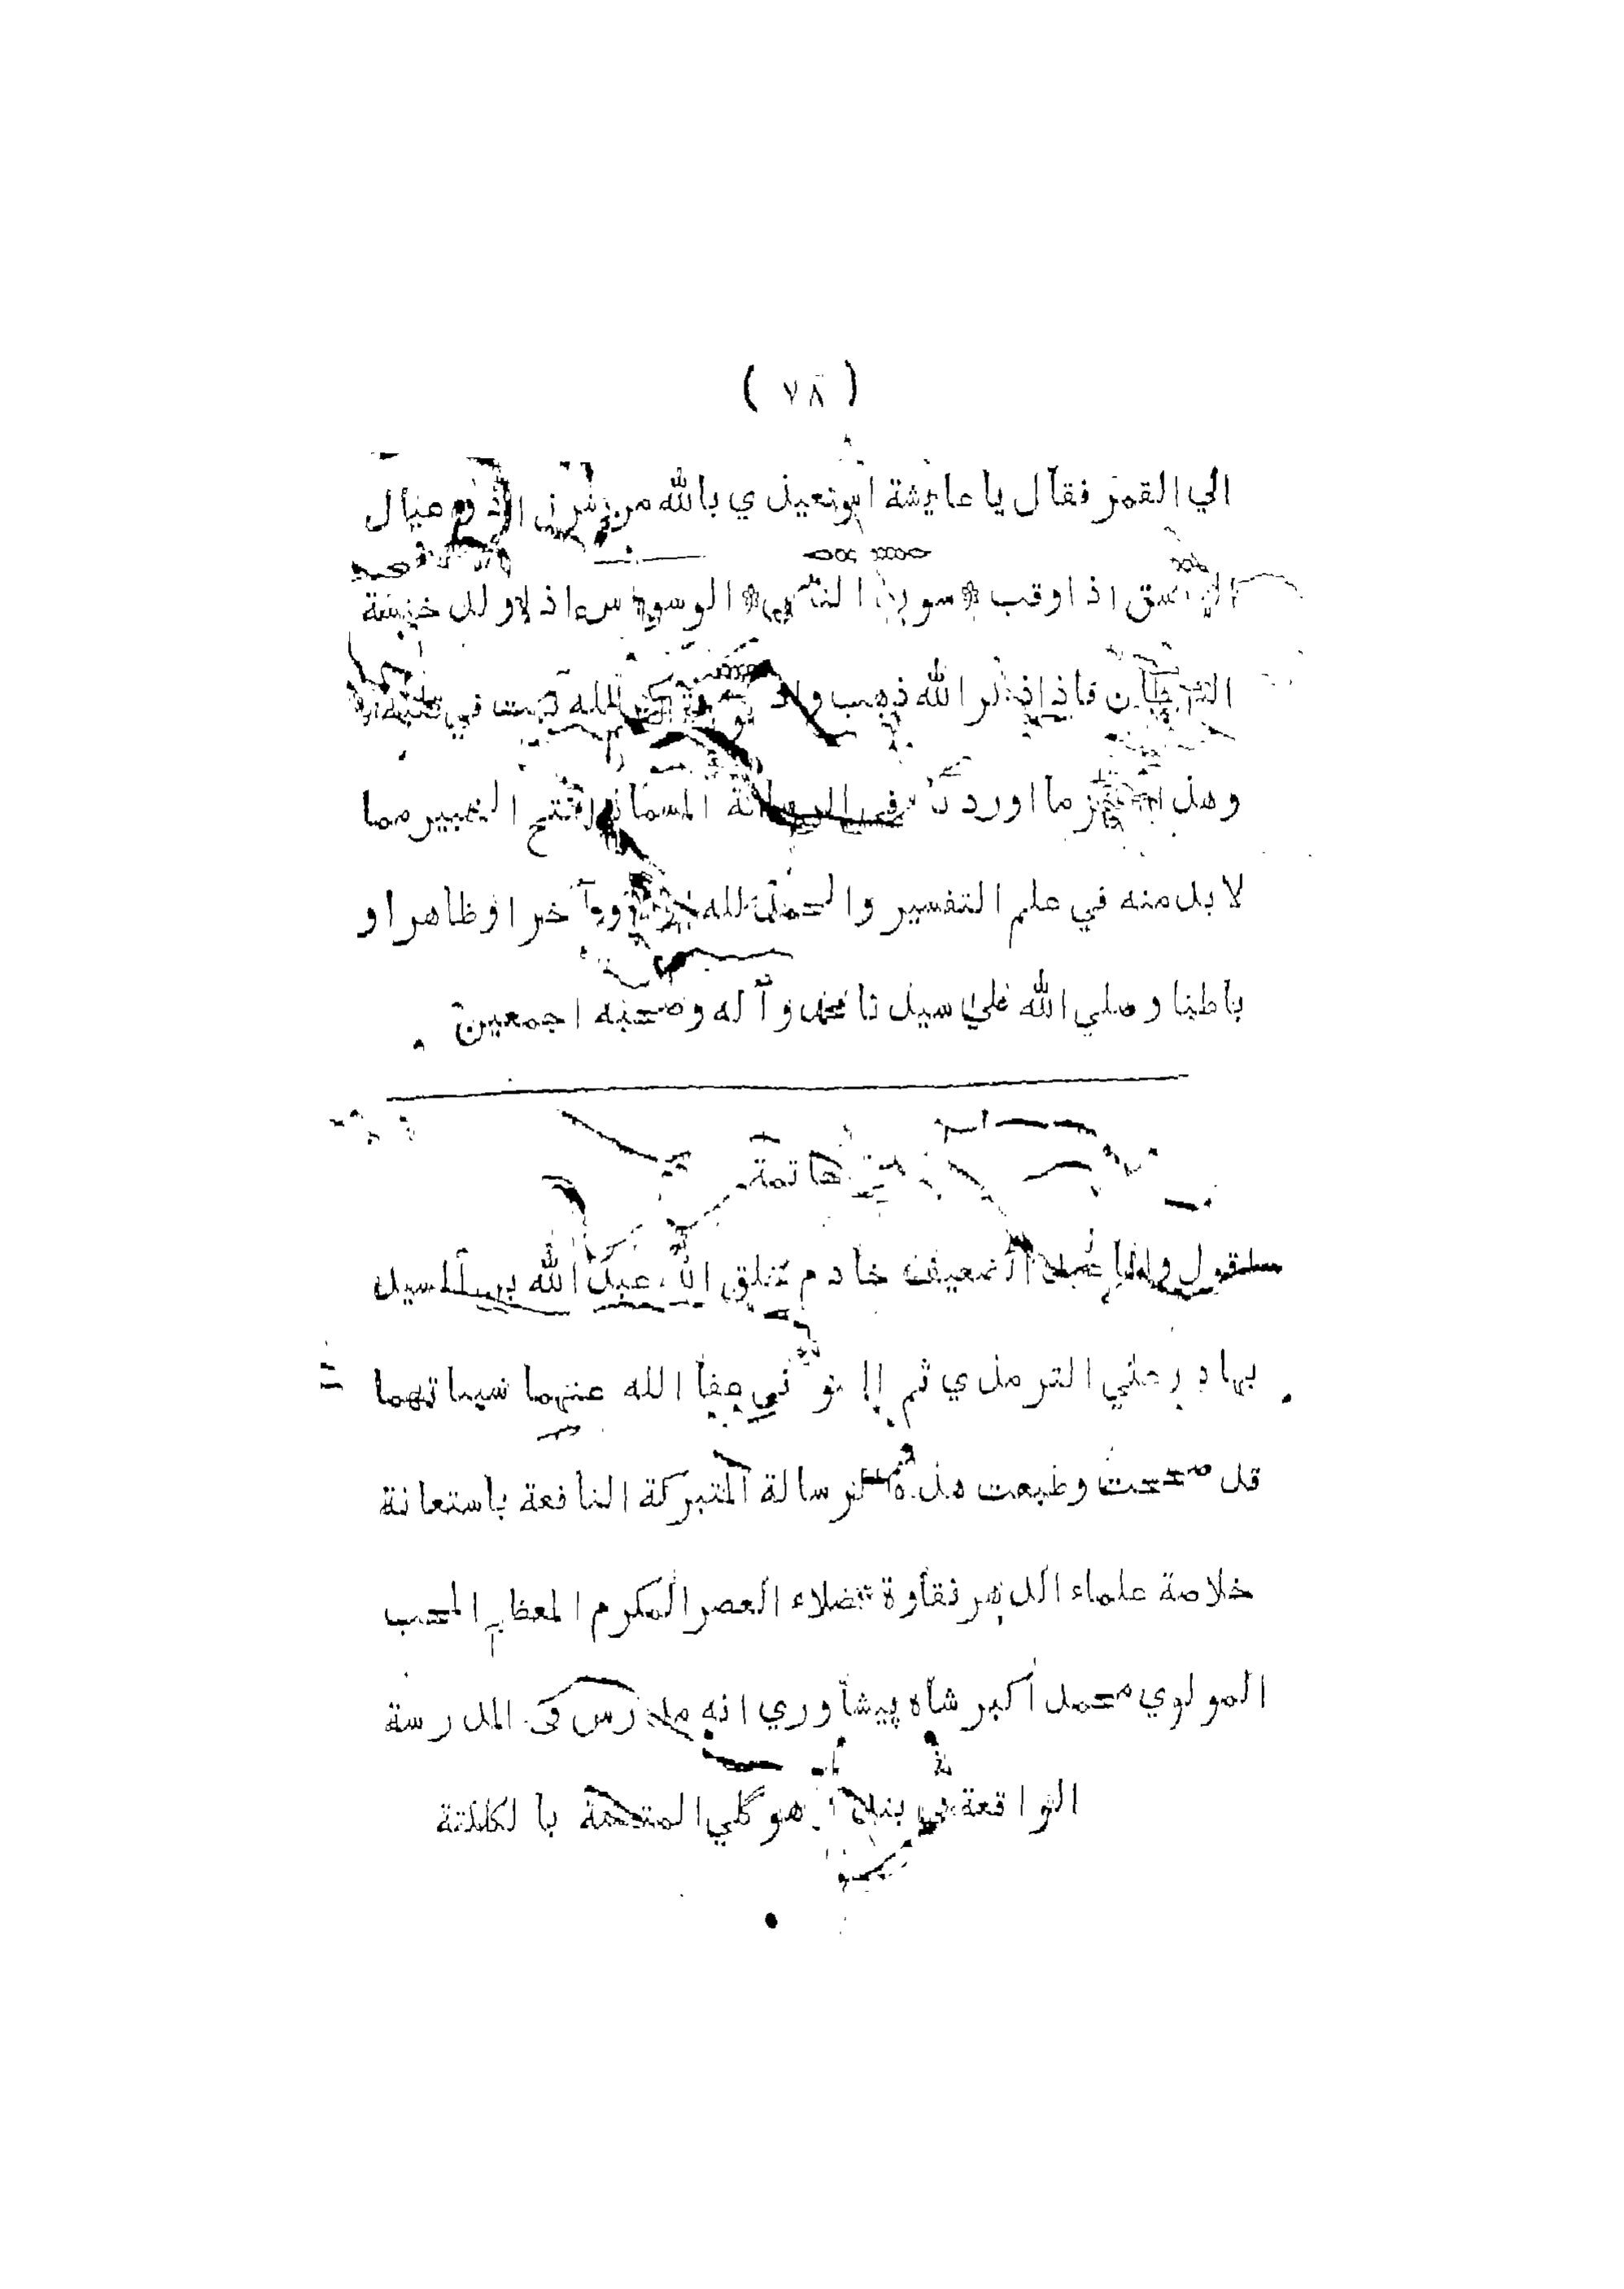 ( ٧٨ )
الي القمر فقال يا عايشة استعيذي بالله من شر
اذا وقب * سورة الناس * الوسواس اذا ولد خنسه
الشيطان فاذا ذكر الله ذهب واذا لم يذكر الله ثبت في قلبه
وهذا آخر ما اوردنا في الرسالة المسماة بفتح الخبير مما
لا بد منه في علم التفسير والحمد لله اولا وآخرا وظاهرا و
باطنا وصلي الله علي سيدنا محمد وآله وصحبه اجمعين
خاتمة
يقول العبد الضعيف خادم خلق الله عبد الله بن السيد
بهادر علي الترمذي ثم عفا الله عنهما سيئاتهما
قد صححت وطبعت هذه الرسالة المتبركة النافعة باستعانة
خلاصة علماء الدهر نقاوة فضلاء العصر المكرم المعظم المحب
المولوي محمد اكبر شاه پيشاوري انه مدرس فى المدرسة
الواقعة في بندر هوگلي المتعلقة بالكلكتة